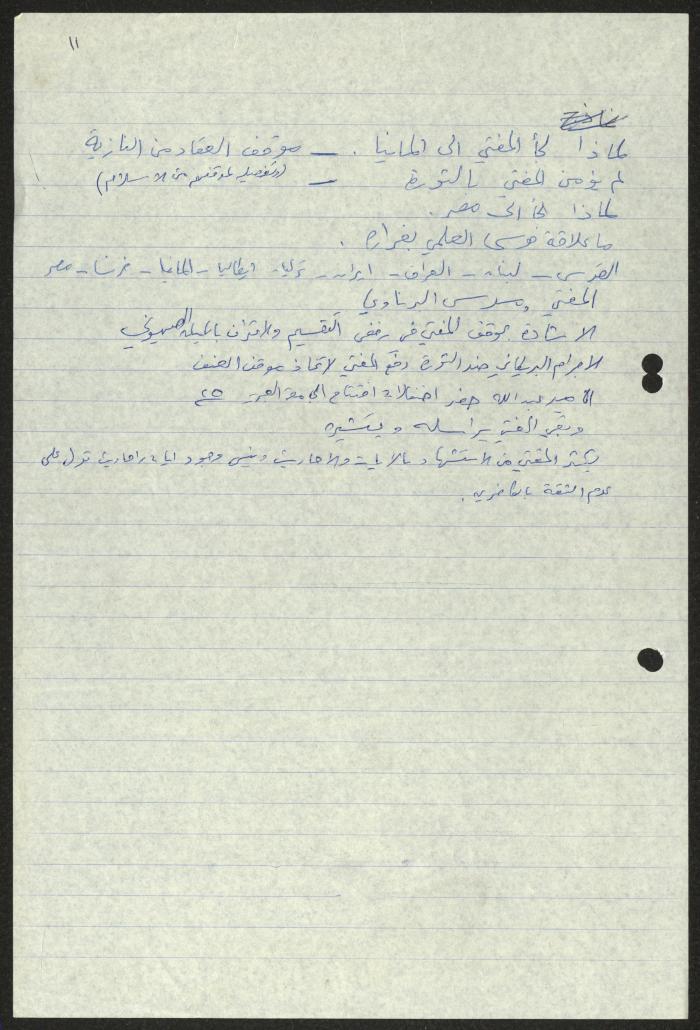 ١١
لماذا لجأ المفتي الى المانيا . — موقف العقاد من النازية
لم يؤمن المفتي بالثورة — (وتفصيله لموقفهم من الاسلام)
لماذا لجأ الى مصر .
ما علاقة موسى العلمي بفراره .
القدس - لبنان - العراق - ايران - تركيا - ايطاليا - المانيا - فرنسا - مصر
المفتي
الاشادة بموقف المفتي في رفض التقسيم والاعتراف بالصهيوني
الاجرام البريطاني ضد الثورة دفع المفتي لاتخاذ موقف العنف
الامير عبد الله حضر احتفالات افتتاح الجامعة العبرية ٢٥
وبقي المفتي يراسله ويستشيره
يكثر المفتي من الاستشهاد بالايات والاحاديث وينسى وجود ايات واحاديث تدل على
عدم الثقة بالكافرين .